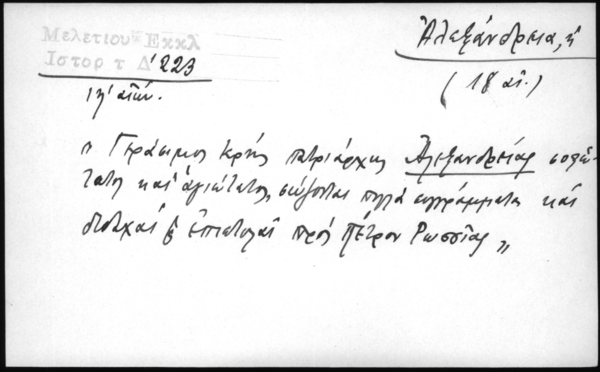 Μελετιου Εκκλ
Ιστορ τ Δ' 223
ιη' αἰών.
Ἀλεξάνδρεια, ἡ
(18 αἰ.)
" Γεράσιμος Κρὴς πατριάρχης Ἀλεξανδρείας σοφώ-
τατος καὶ ἁγιώτατος, σώζονται πολλὰ συγγράμματα καὶ
διδαχαὶ ἐπιστολαὶ πρὸς Πέτρον Ρωσσίας "